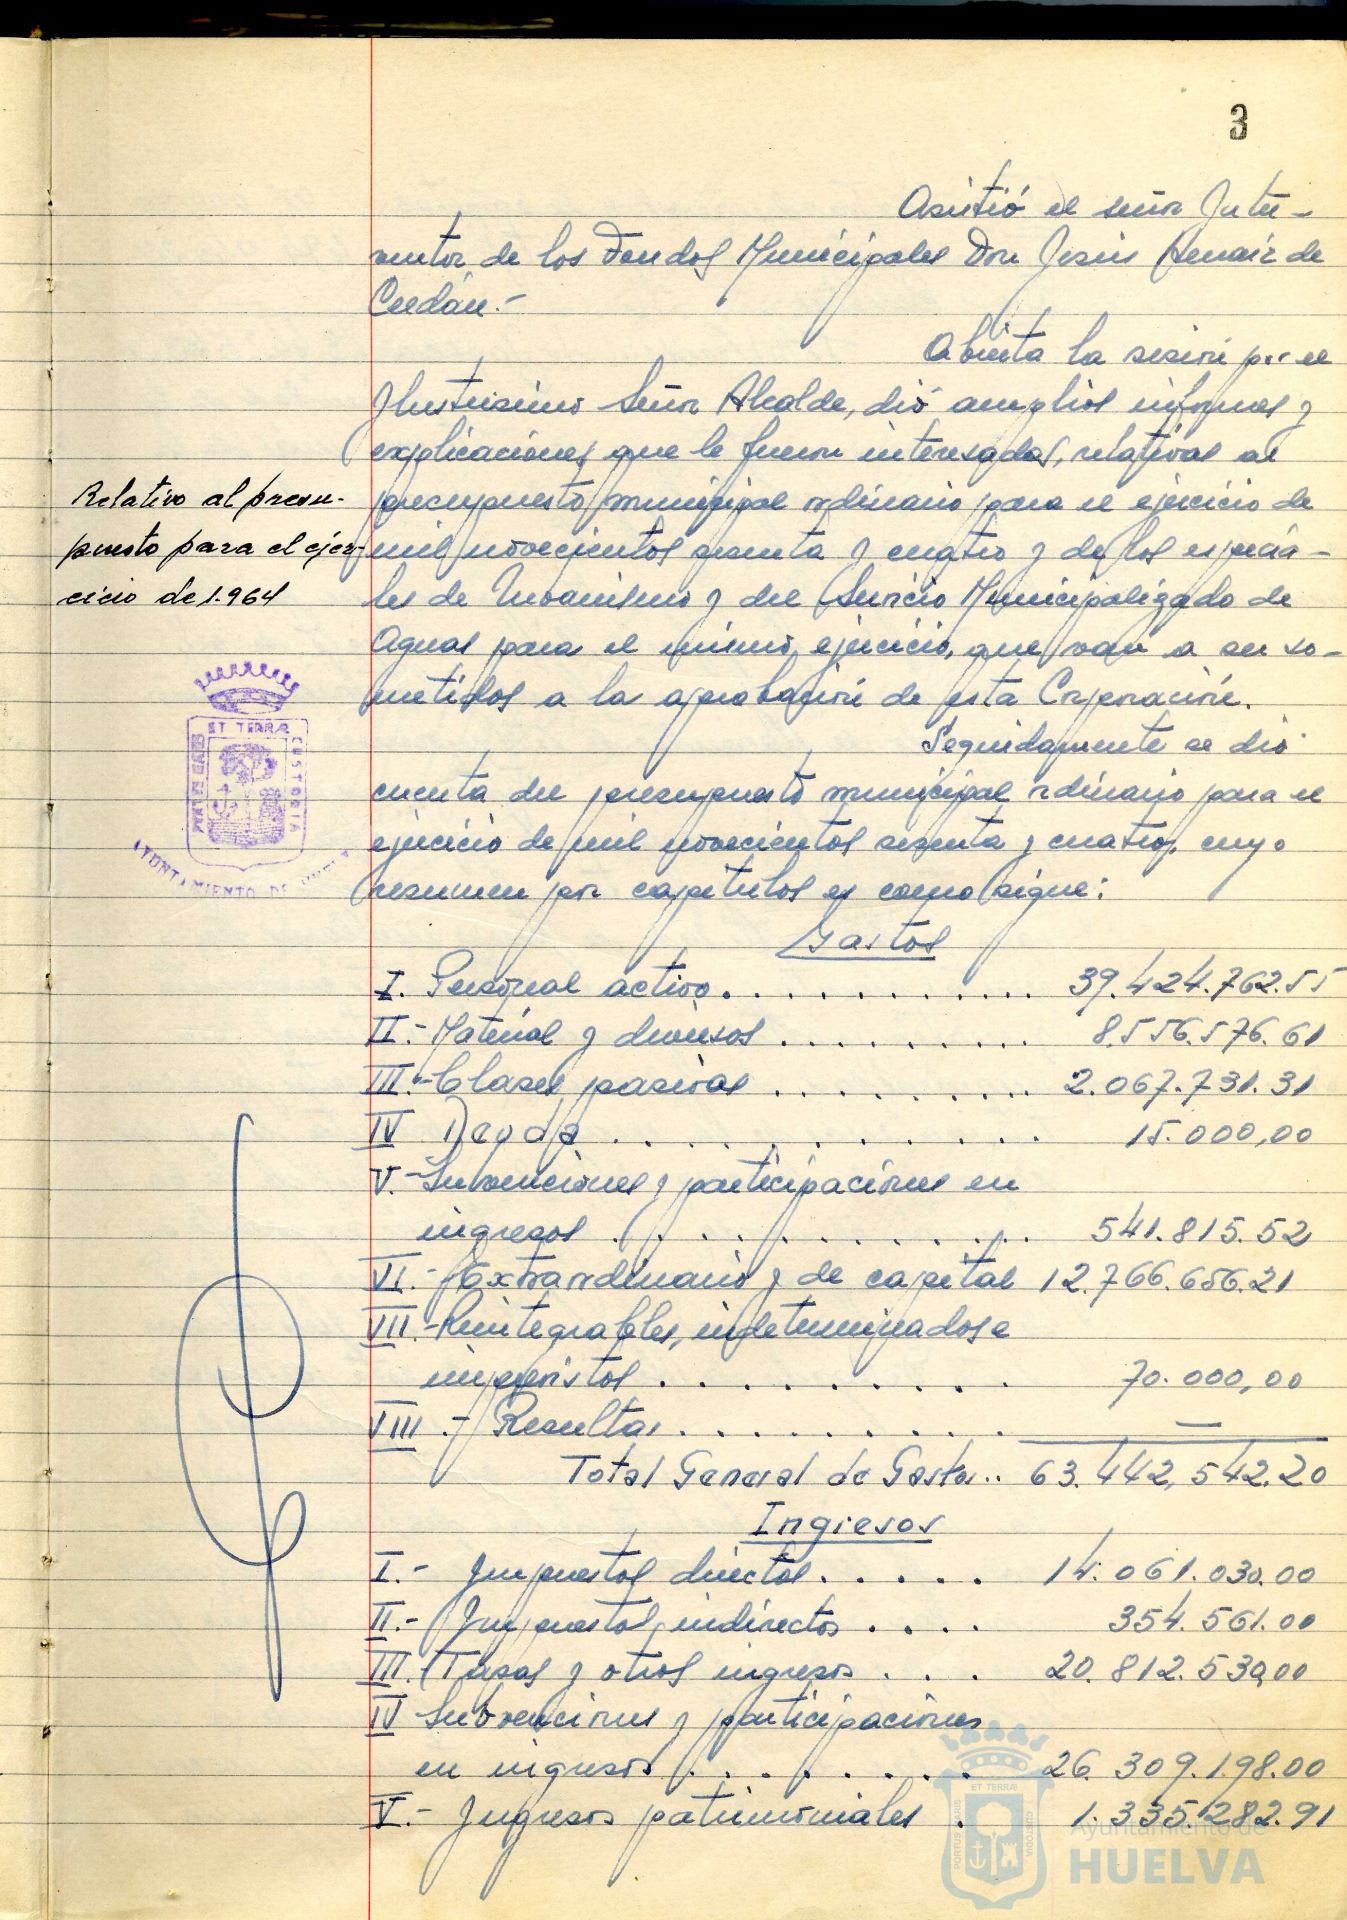 3
Asistió el señor Inter-
ventor de los Fondos Municipales Don Jesús Arnaiz de
Cerdán.-
Abierta la sesión por el
Ilustrísimo Señor Alcalde, dió amplios informes y
explicaciones que le fueron interesadas, relativas al
presupuesto municipal ordinario para el ejercicio de
mil novecientos sesenta y cuatro y de los especia-
les de Urbanismo y del Servicio Municipalizado de
Aguas para el mismo ejercicio, que van a ser so-
metidos a la aprobación de esta Corporación.
Relativo al presu-
puesto para el ejer-
cicio de 1.964
Seguidamente se dió
cuenta del presupuesto municipal ordinario para el
ejercicio de mil novecientos sesenta y cuatro, cuyo
resumen por capítulos es como sigue:
ET TERRÆ
CUSTODIA
AYUNTAMIENTO DE HUELVA
Gastos
I. Personal activo . . . . . . . . . . . 39.424.762.55
II.- Material y diversos . . . . . . . . . 8.556.576.61
III.- Clases pasivas . . . . . . . . . 2.067.731.31
IV Deuda . . . . . . . . . . . . 15.000,00
V.- Subvenciones y participaciones en
ingresos . . . . . . . . . . . 541.815.52
VI.- Extraordinario y de capital 12.766.656.21
VII.- Reintegrables, indeterminados e
imprevistos . . . . . . . . . 70.000,00
VIII.- Resultas . . . . . . . . . . —
Total General de Gastos.. 63.442,542.20
Ingresos
I.- Impuestos directos . . . . . 14.061.030.00
II.- Impuestos indirectos . . . . 354.561.00
III. Tasas y otros ingresos . . . 20.812.530,00
IV Subvenciones y participaciones
en ingresos . . . . . . . . 26.309.198.00
V.- Ingresos patrimoniales . 1.335.282.91
PORTUS MARIS
ET TERRÆ
CUSTODIA
Ayuntamiento de
HUELVA